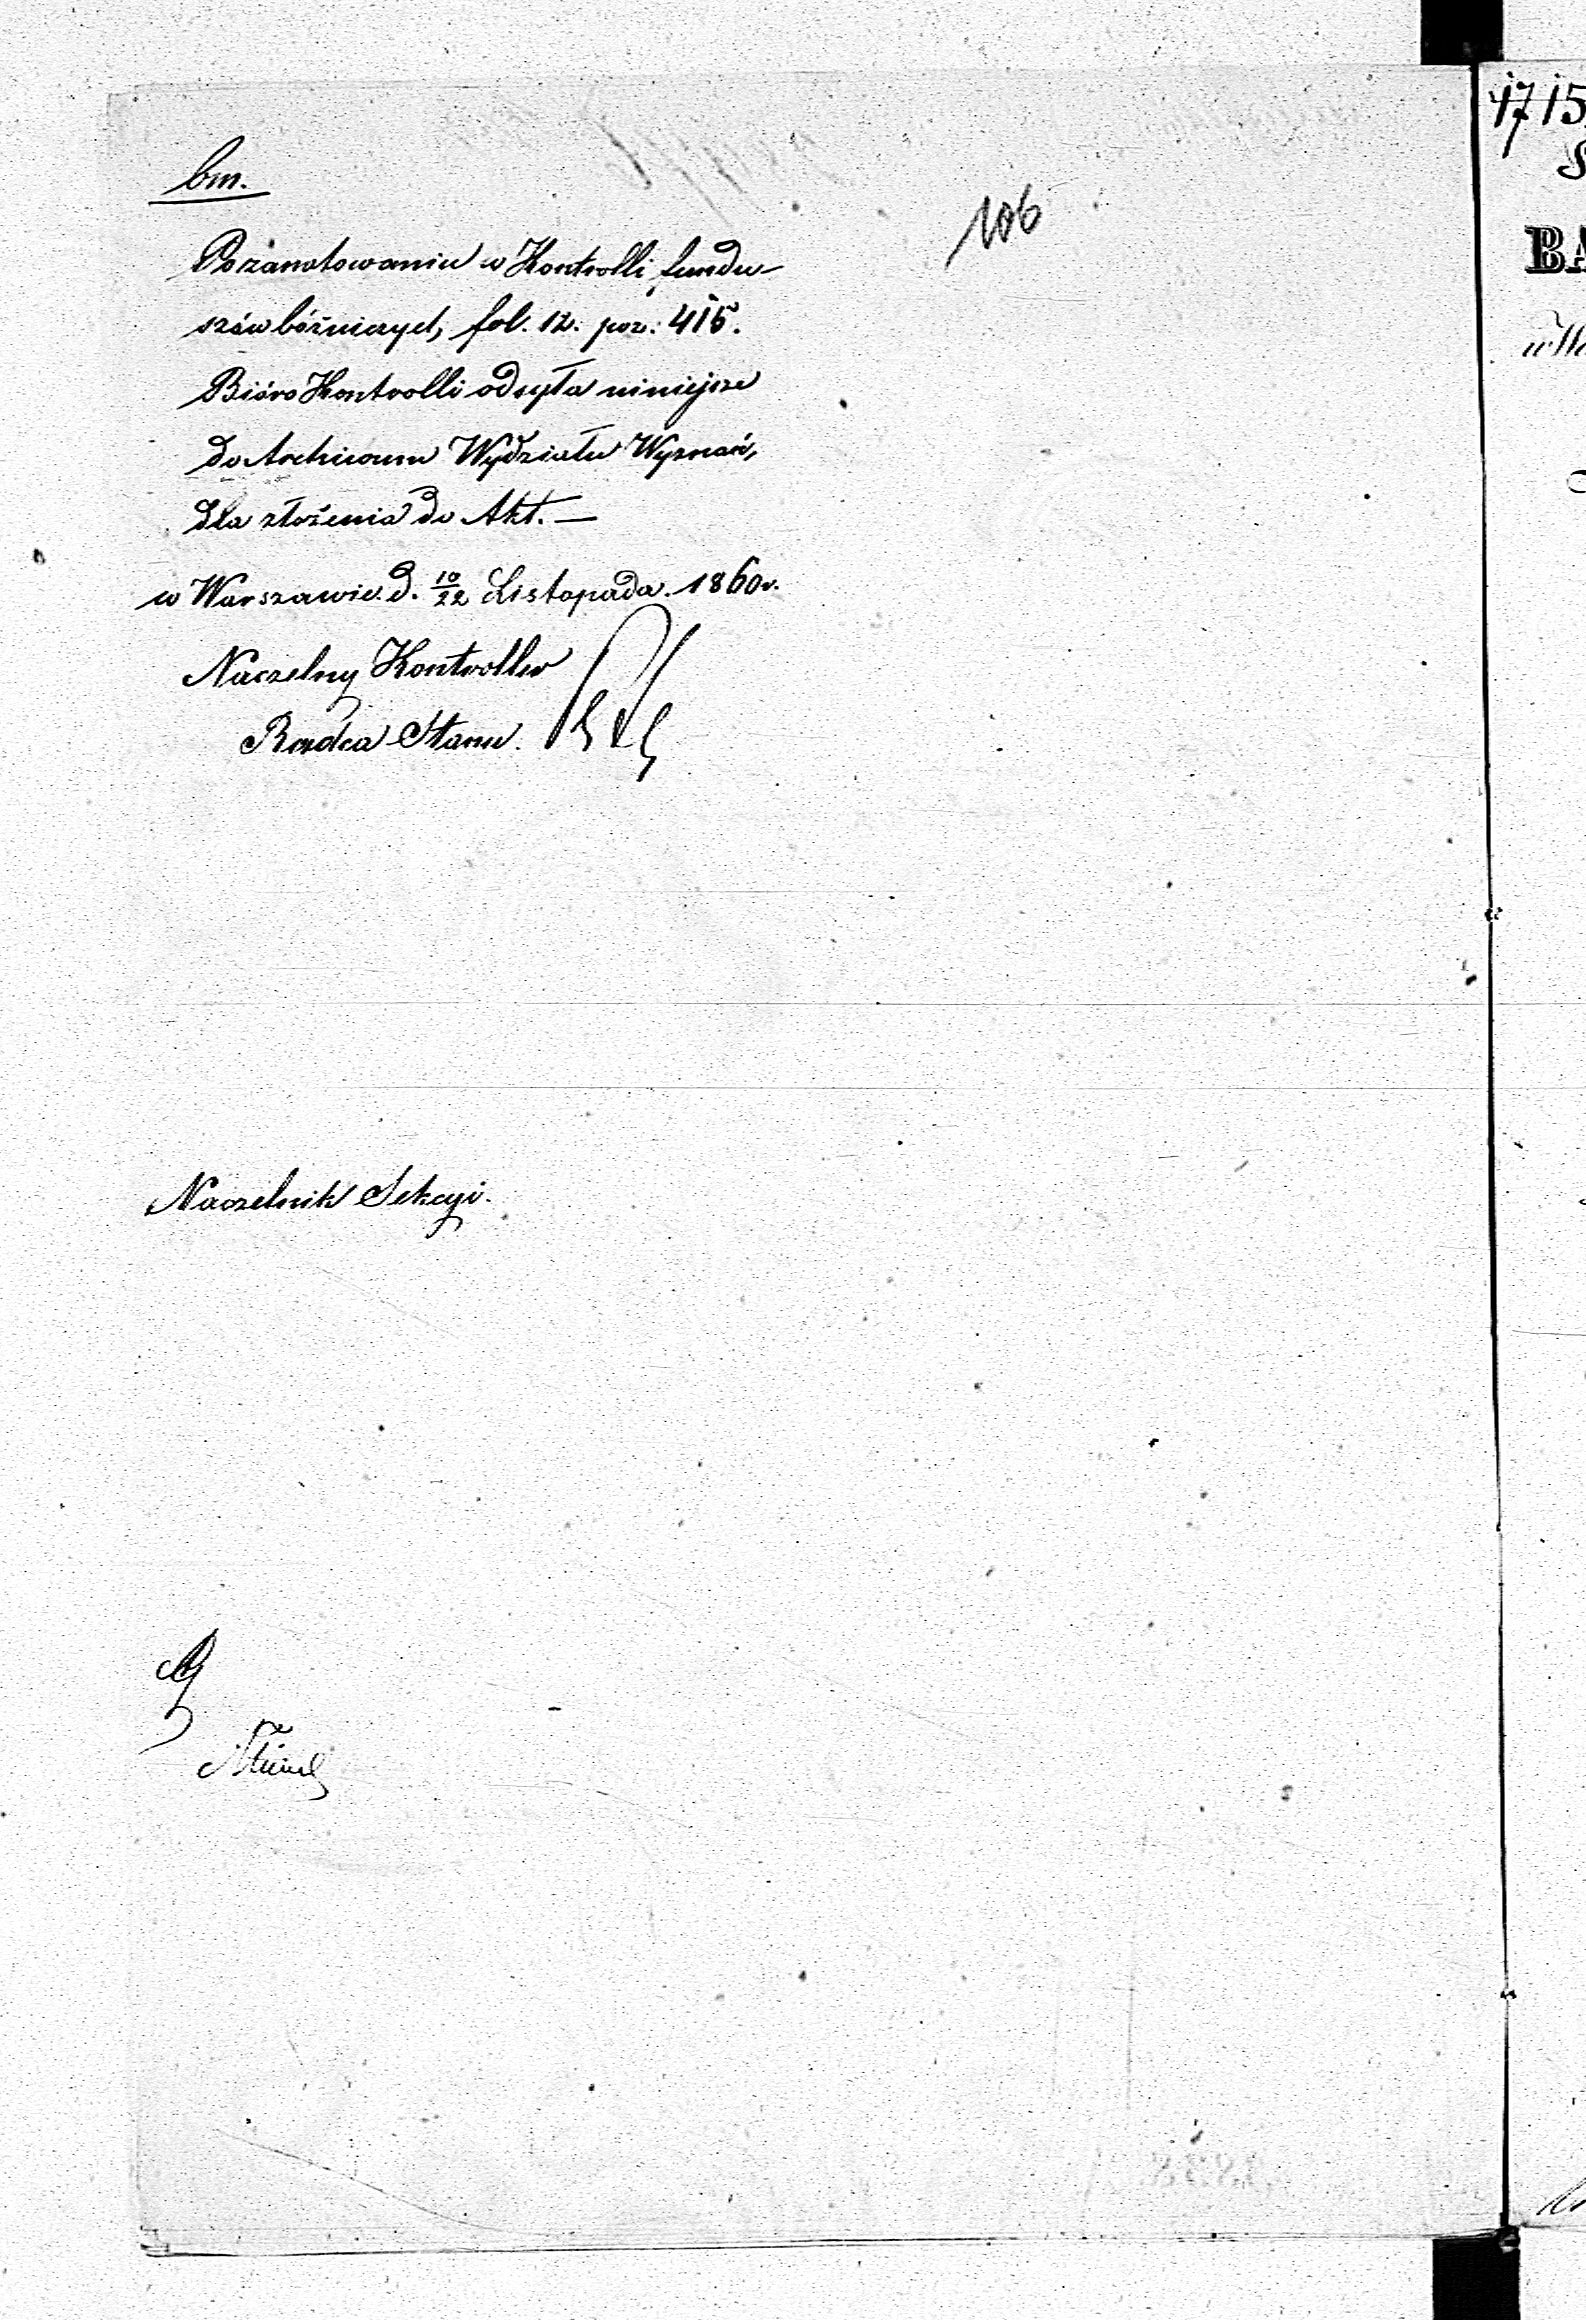 bm.
106
Po zanotowaniu w Kontrolli fundu-
szów bóżniczych, fol. 12. poz: 415.
Bióro Kontrolli odsyła niniejsze
do Archiwum Wydziału Wyznań,
dla złożenia do Akt. —
w Warszawie d. 10/22 Listopada 1860 r.
Naczelny Kontroller
Radca Stanu.
Naczelnik Sekcyi.
1715
BA